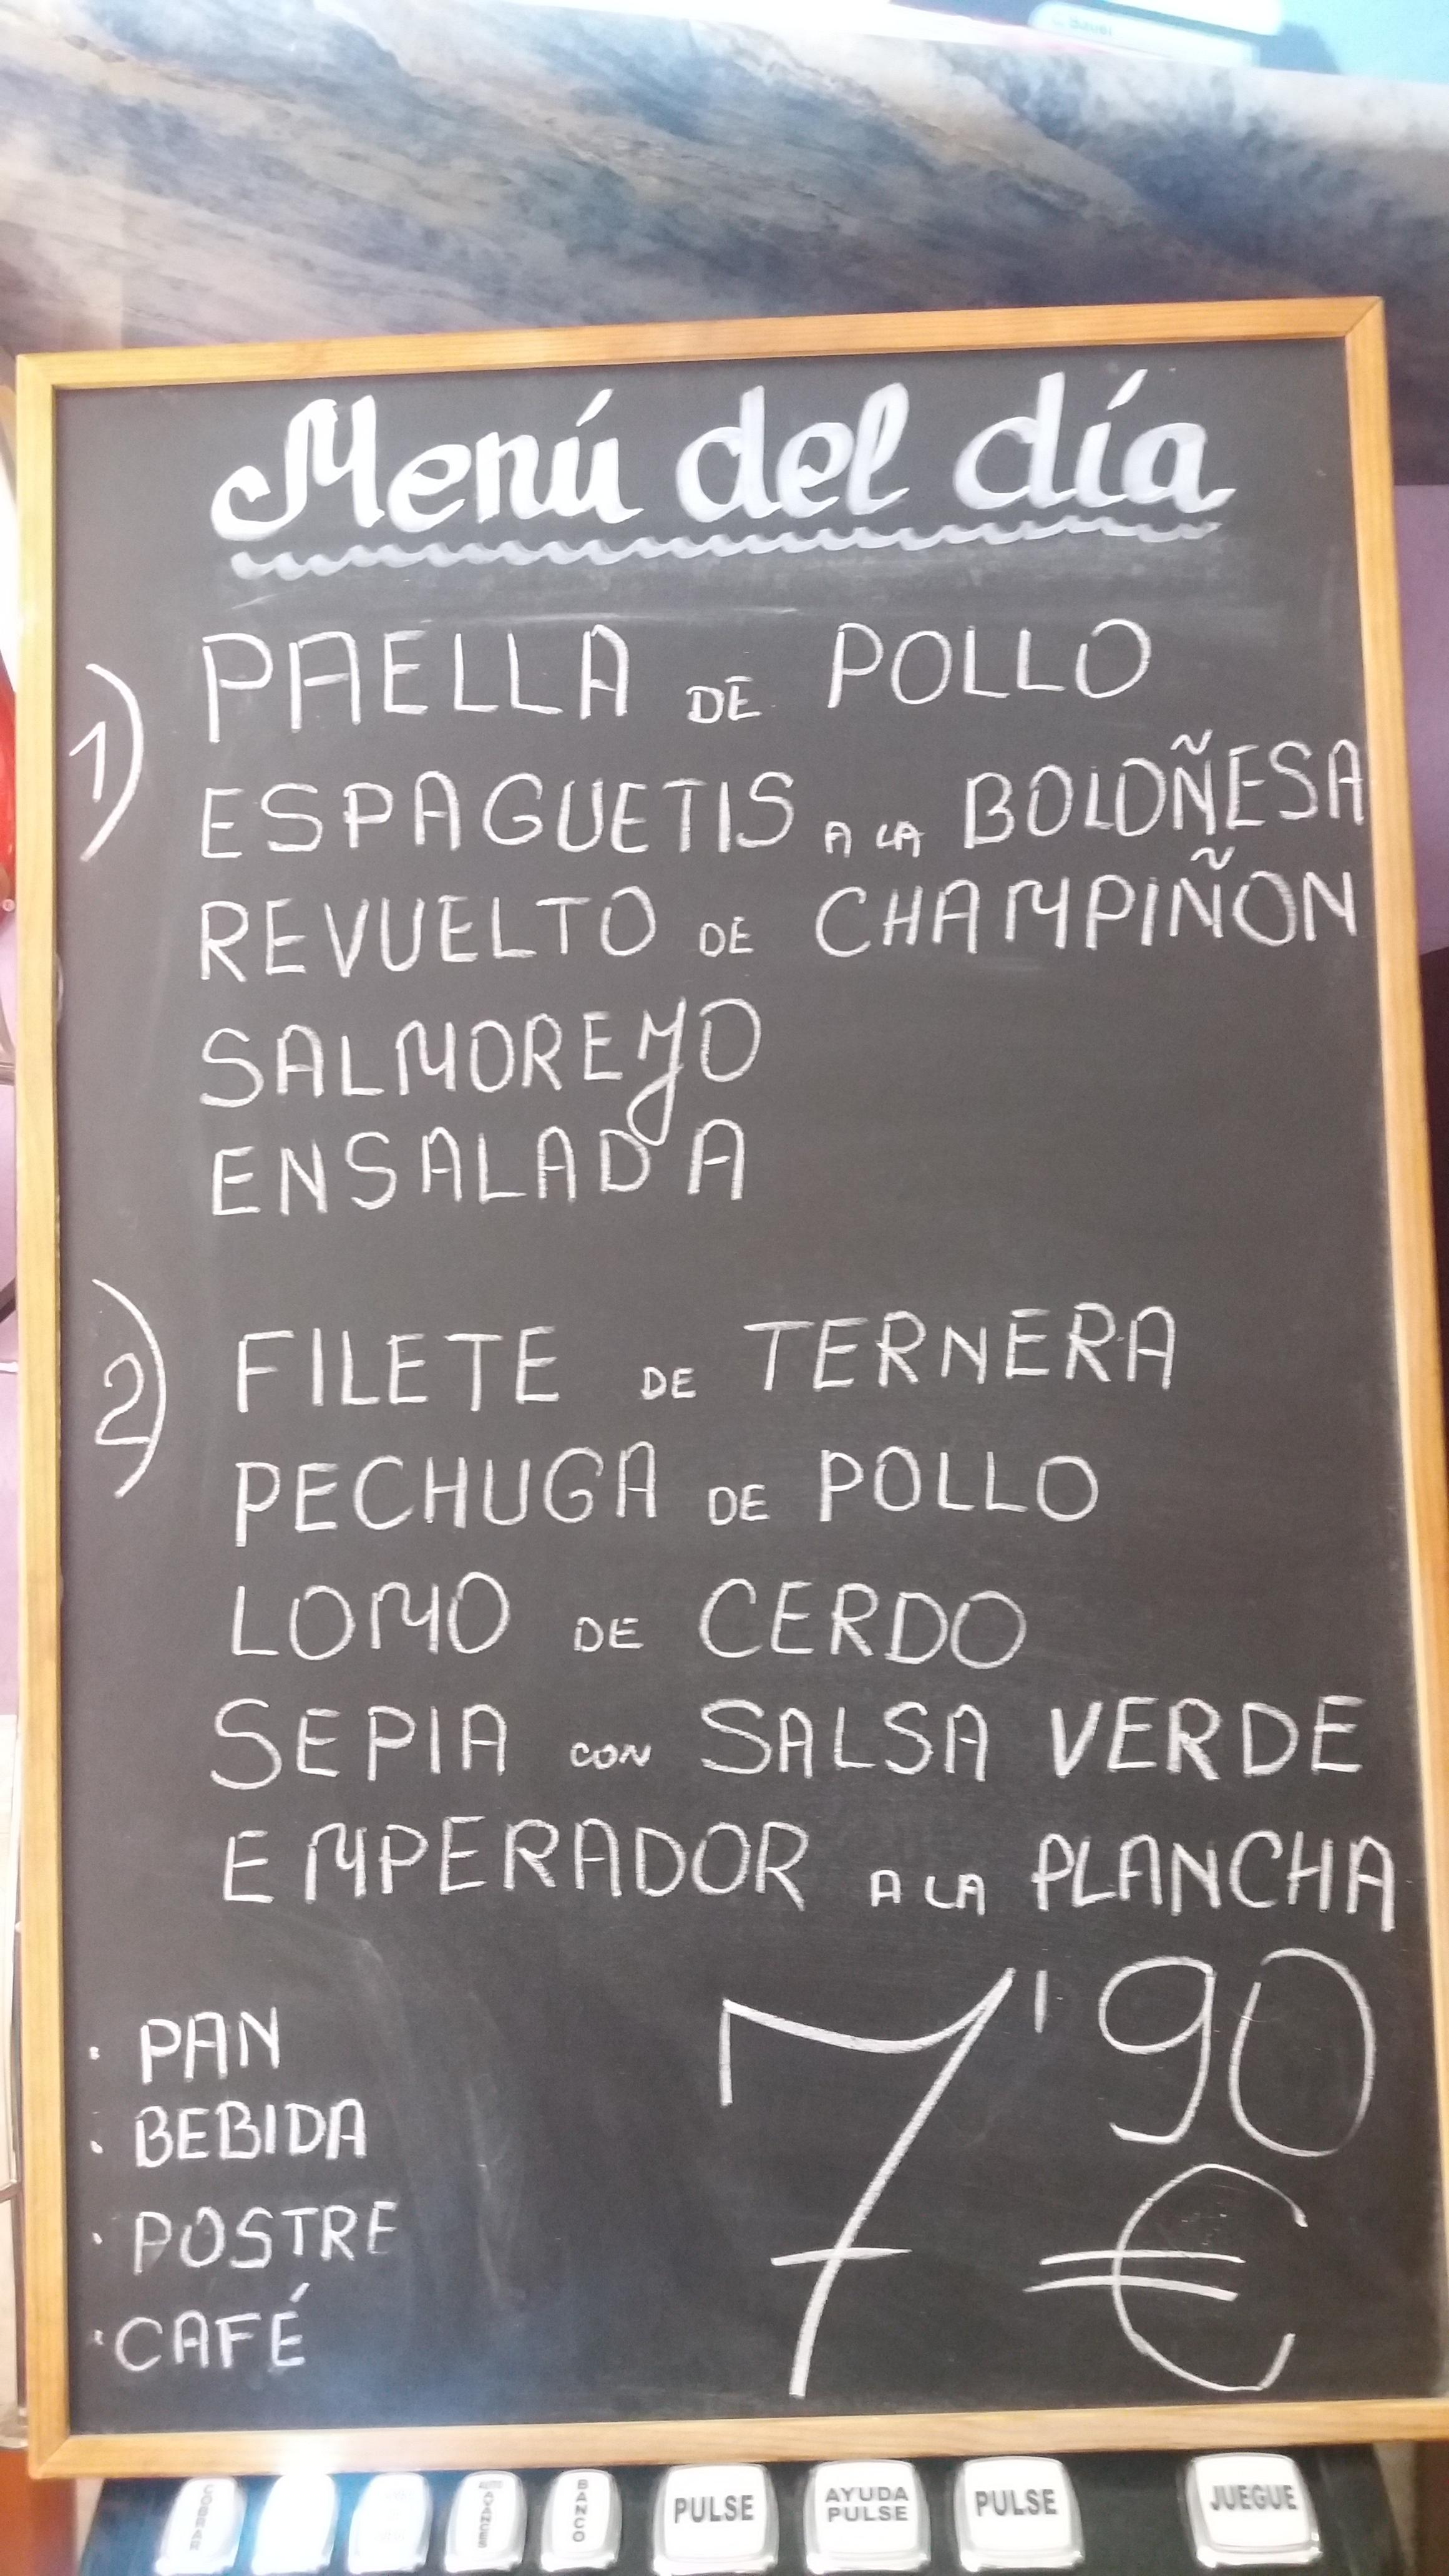 Menú del día
1) PAELLA DE POLLO
ESPAGUETIS A LA BOLOÑESA
REVUELTO DE CHAMPIÑON
SALMOREJO
ENSALADA
2) FILETE DE TERNERA
PECHUGA DE POLLO
LOMO DE CERDO
SEPIA CON SALSA VERDE
EMPERADOR A LA PLANCHA
· PAN
· BEBIDA
· POSTRE
· CAFÉ
7'90
€
COBRAR
AUTO AVANCES
BANCO
PULSE
AYUDA
PULSE
PULSE
JUEGUE